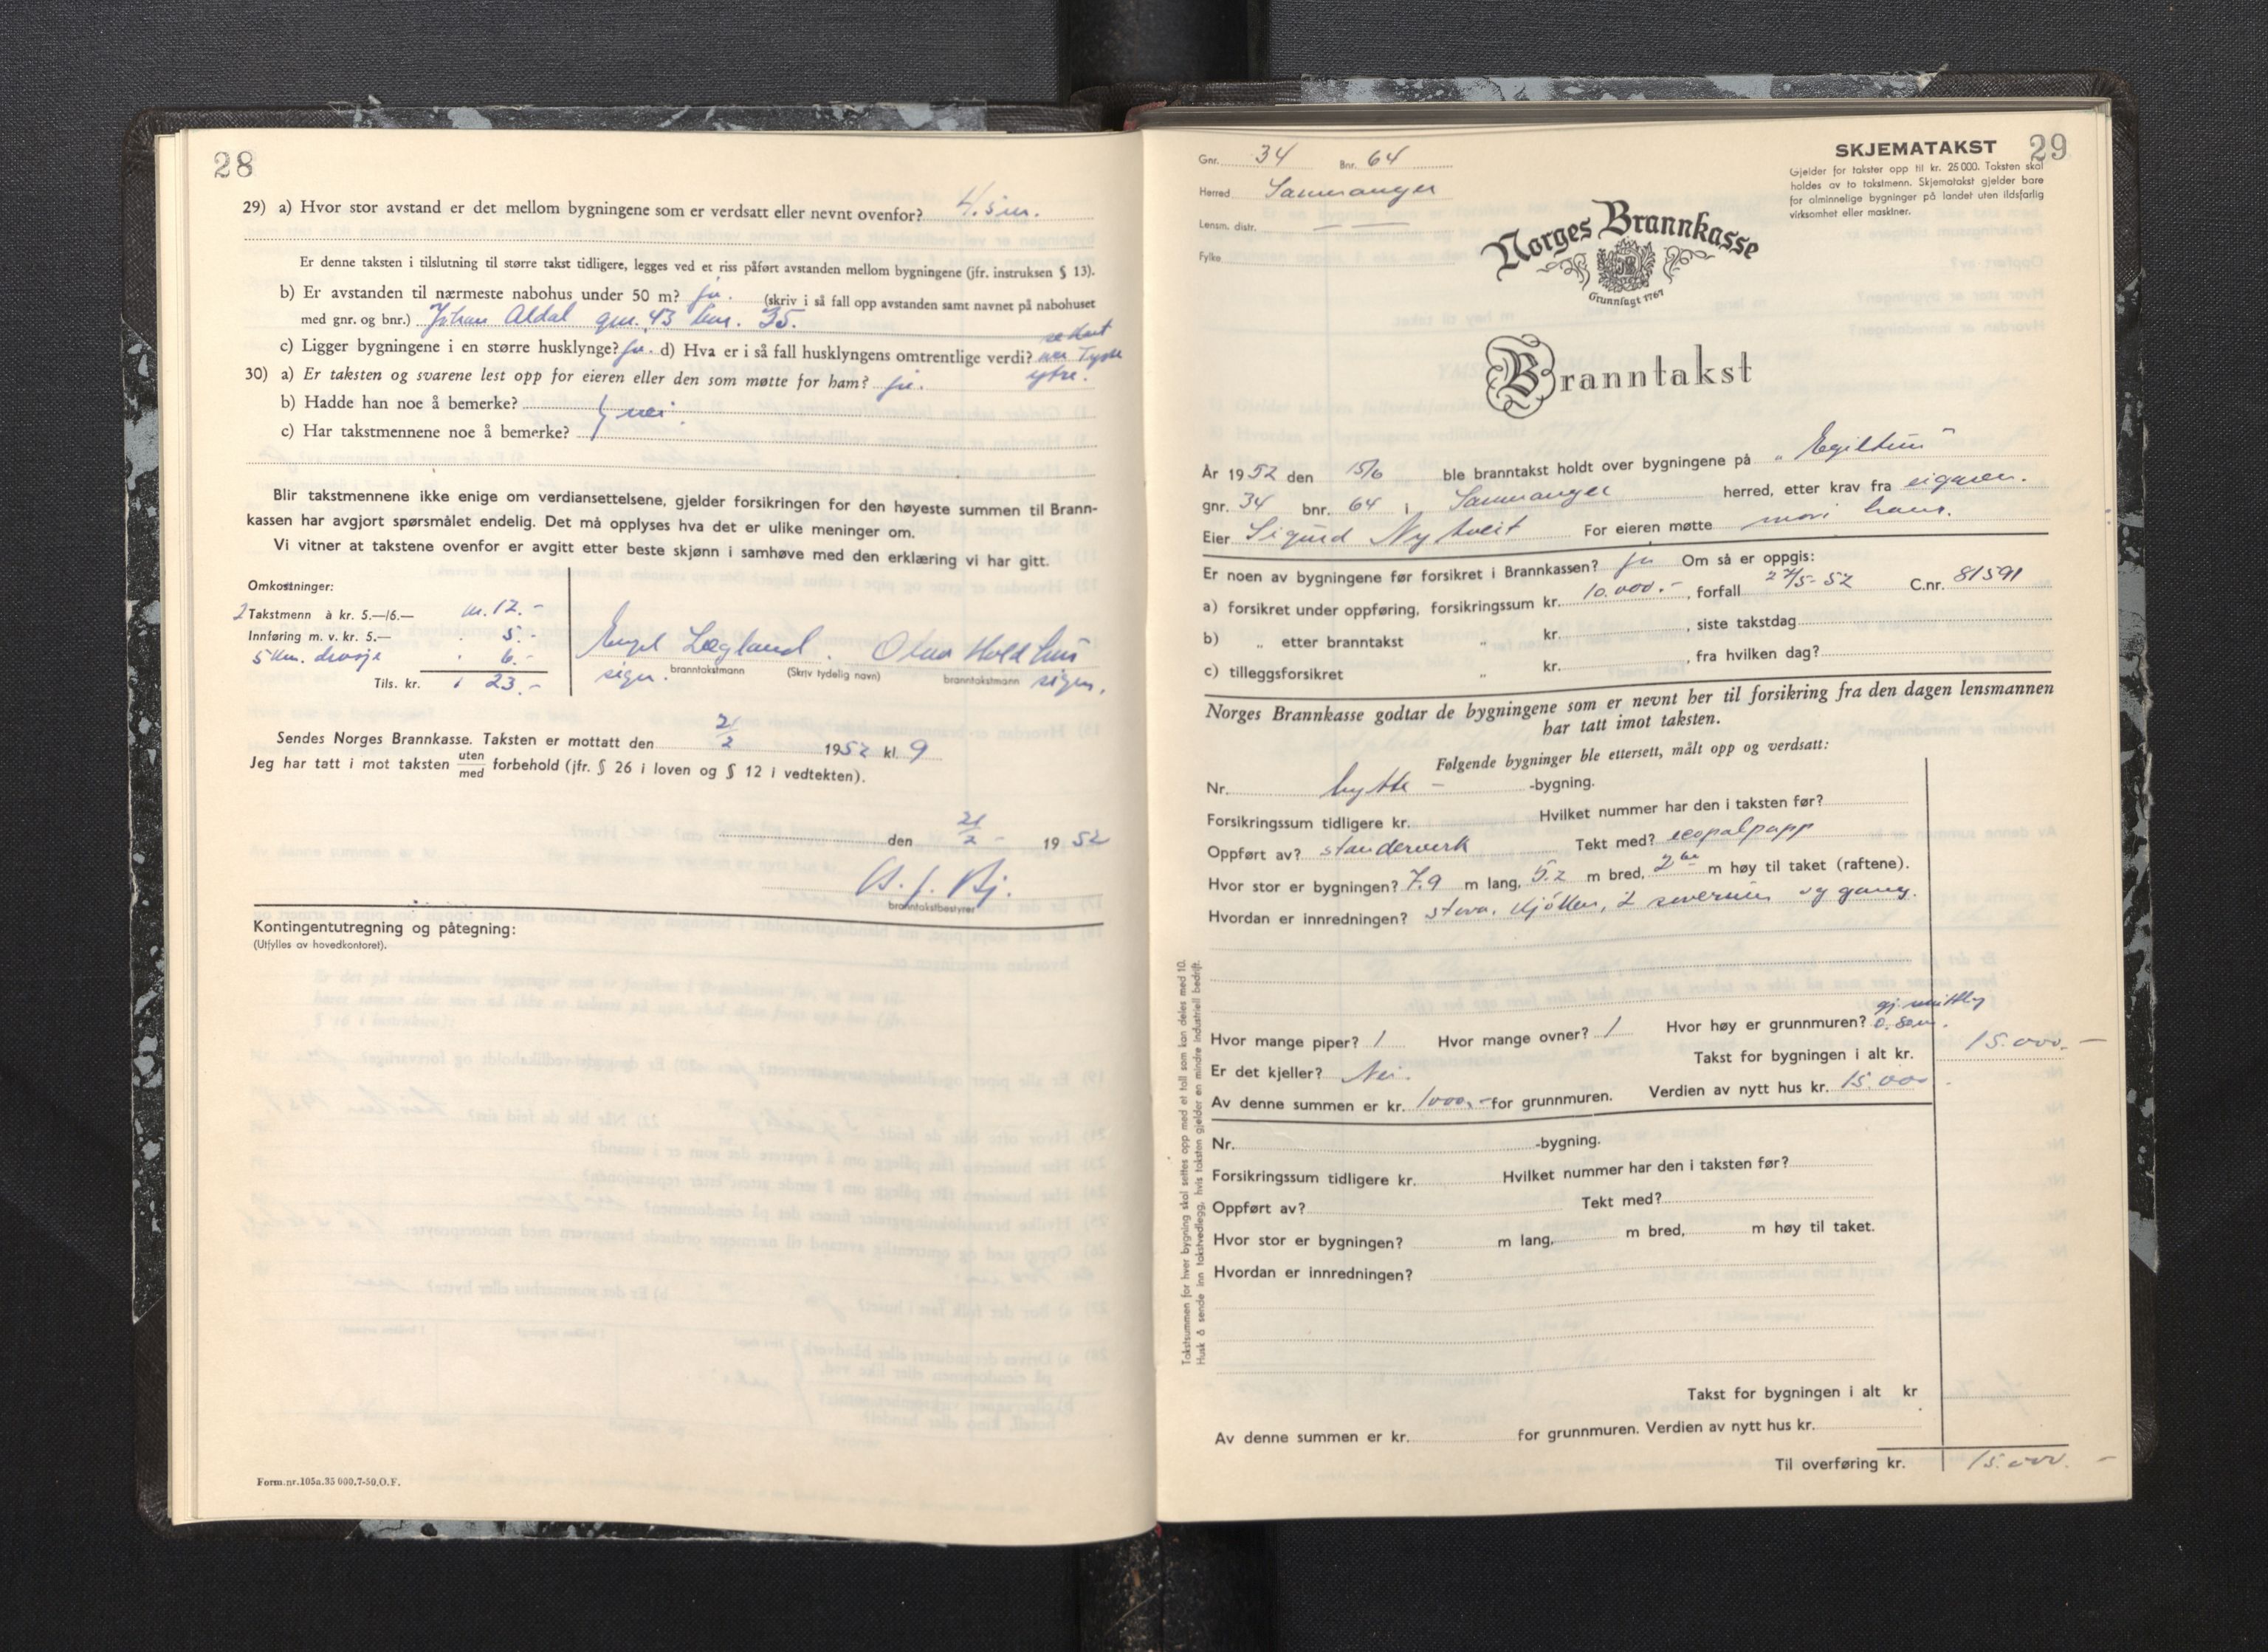 28
29) a) Hvor stor avstand er det mellom bygningene som er verdsatt eller nevnt ovenfor? 4.5m.
Er denne taksten i tilslutning til større takst tidligere, legges ved et riss påført avstanden mellom bygningene (jfr. instruksen § 13).
b) Er avstanden til nærmeste nabohus under 50 m? ja. (skriv i så fall opp avstanden samt navnet på nabohuset
med gnr. og bnr.) Johan Aldal gnr. 43 bnr. 35.
c) Ligger bygningene i en større husklynge? ja. d) Hva er i så fall husklyngens omtrentlige verdi?
ytre.
30) a) Er taksten og svarene lest opp for eieren eller den som møtte for ham? ja.
b) Hadde han noe å bemerke?
c) Har takstmennene noe å bemerke? } nei
Blir takstmennene ikke enige om verdiansettelsene, gjelder forsikringen for den høyeste summen til Brann-
kassen har avgjort spørsmålet endelig. Det må opplyses hva det er ulike meninger om.
Vi vitner at takstene ovenfor er avgitt etter beste skjønn i samhøve med den erklæring vi har gitt.
Omkostninger:
2 Takstmenn à kr. 5.—/6.— kr. 12.-
Innføring m. v. kr. 5.— 5.-
5 km. drosje 6.-
Tils. kr. 23.-
Engel Lægland. Olav Holdhus
sign. branntakstmann (Skriv tydelig navn) branntakstmann sign.
Sendes Norges Brannkasse. Taksten er mottatt den 2/2 1952 kl. 9
Jeg har tatt i mot taksten uten/med forbehold (jfr. § 26 i loven og § 12 i vedtekten).
den 21/2 - 1952
branntakstbestyrer
Kontingentutregning og påtegning:
(Utfylles av hovedkontoret).
Form.nr.105a.35 000.7-50.O.F.
29
Gnr. 34 Bnr. 64
Herred Samnanger
Lensm. distr. — —
Fylke
SKJEMATAKST
Gjelder for takster opp til kr. 25 000. Taksten skal
holdes av to takstmenn. Skjematakst gjelder bare
for alminnelige bygninger på landet uten ildsfarlig
virksomhet eller maskiner.
Norges Brannkasse
Grunnlagt 1767
Branntakst
År 1952 den 15/6 ble branntakst holdt over bygningene på "Egiltun"
gnr. 34 bnr. 64 i Samnanger herred, etter krav fra eigaren.
Eier Sigurd Nytveit For eieren møtte mori hans.
Er noen av bygningene før forsikret i Brannkassen? ja Om så er oppgis:
a) forsikret under oppføring, forsikringssum kr. 10.000.-, forfall 27/5-52 C.nr. 81591
b) „ etter branntakst „ kr. , siste takstdag
c) tilleggsforsikret „ kr. , fra hvilken dag?
Norges Brannkasse godtar de bygningene som er nevnt her til forsikring fra den dagen lensmannen
har tatt imot taksten.
Følgende bygninger ble ettersett, målt opp og verdsatt:
Nr. hytte - -bygning.
Forsikringssum tidligere kr. Hvilket nummer har den i taksten før?
Oppført av? standerverk Tekt med? icopalpapp
Hvor stor er bygningen? 7.9 m lang, 5.2 m bred, m høy til taket (raftene).
Hvordan er innredningen? stova, kjökken, 2 soverum og gang.
Hvor mange piper? 1 Hvor mange ovner? 1 Hvor høy er grunnmuren?
Takst for bygningen i alt kr. 15.000.-
Er det kjeller? Nei.
Av denne summen er kr. 1000.- for grunnmuren. Verdien av nytt hus kr. 15.000.
Nr. -bygning.
Forsikringssum tidligere kr. Hvilket nummer har den i taksten før?
Oppført av? Tekt med?
Hvor stor er bygningen? m lang, m bred, m høy til taket.
Hvordan er innredningen?
Takst for bygningen i alt kr
Av denne summen er kr. for grunnmuren. Verdien av nytt hus kr.
Til overføring kr. 15.000.-
Takstsummen for hver bygning skal settes opp med et tall som kan deles med 10.
Husk å sende inn takstvedlegg, hvis taksten gjelder en mindre industriell bedrift.